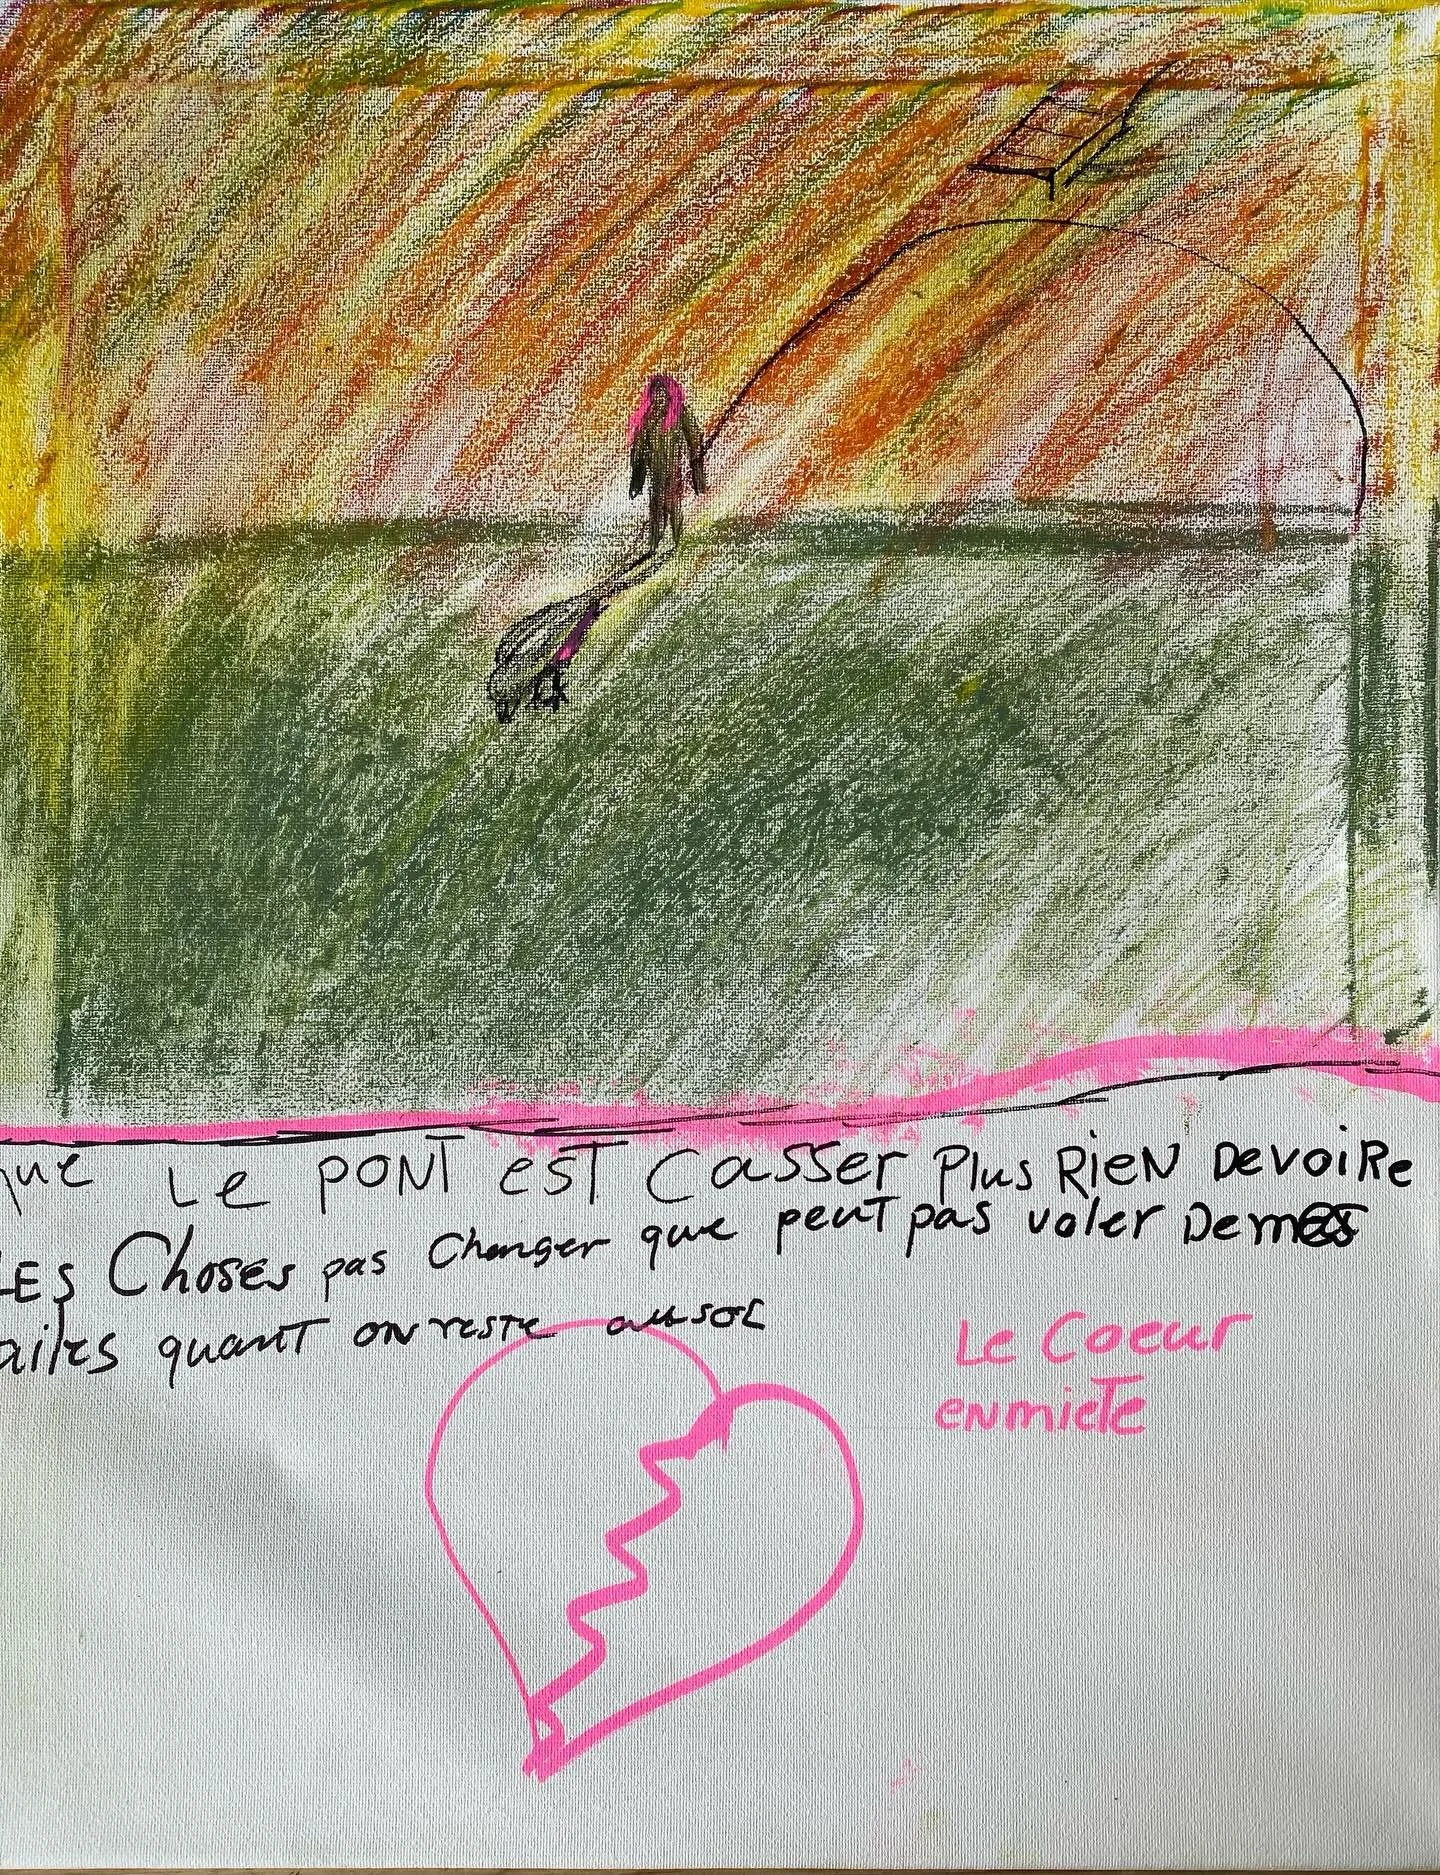 que Le PONT EST Casser Plus RieN DevoiRe
LES Choses pas changer que peut pas voler Demes
ailes quant on reste au sol
Le Coeur
en miete